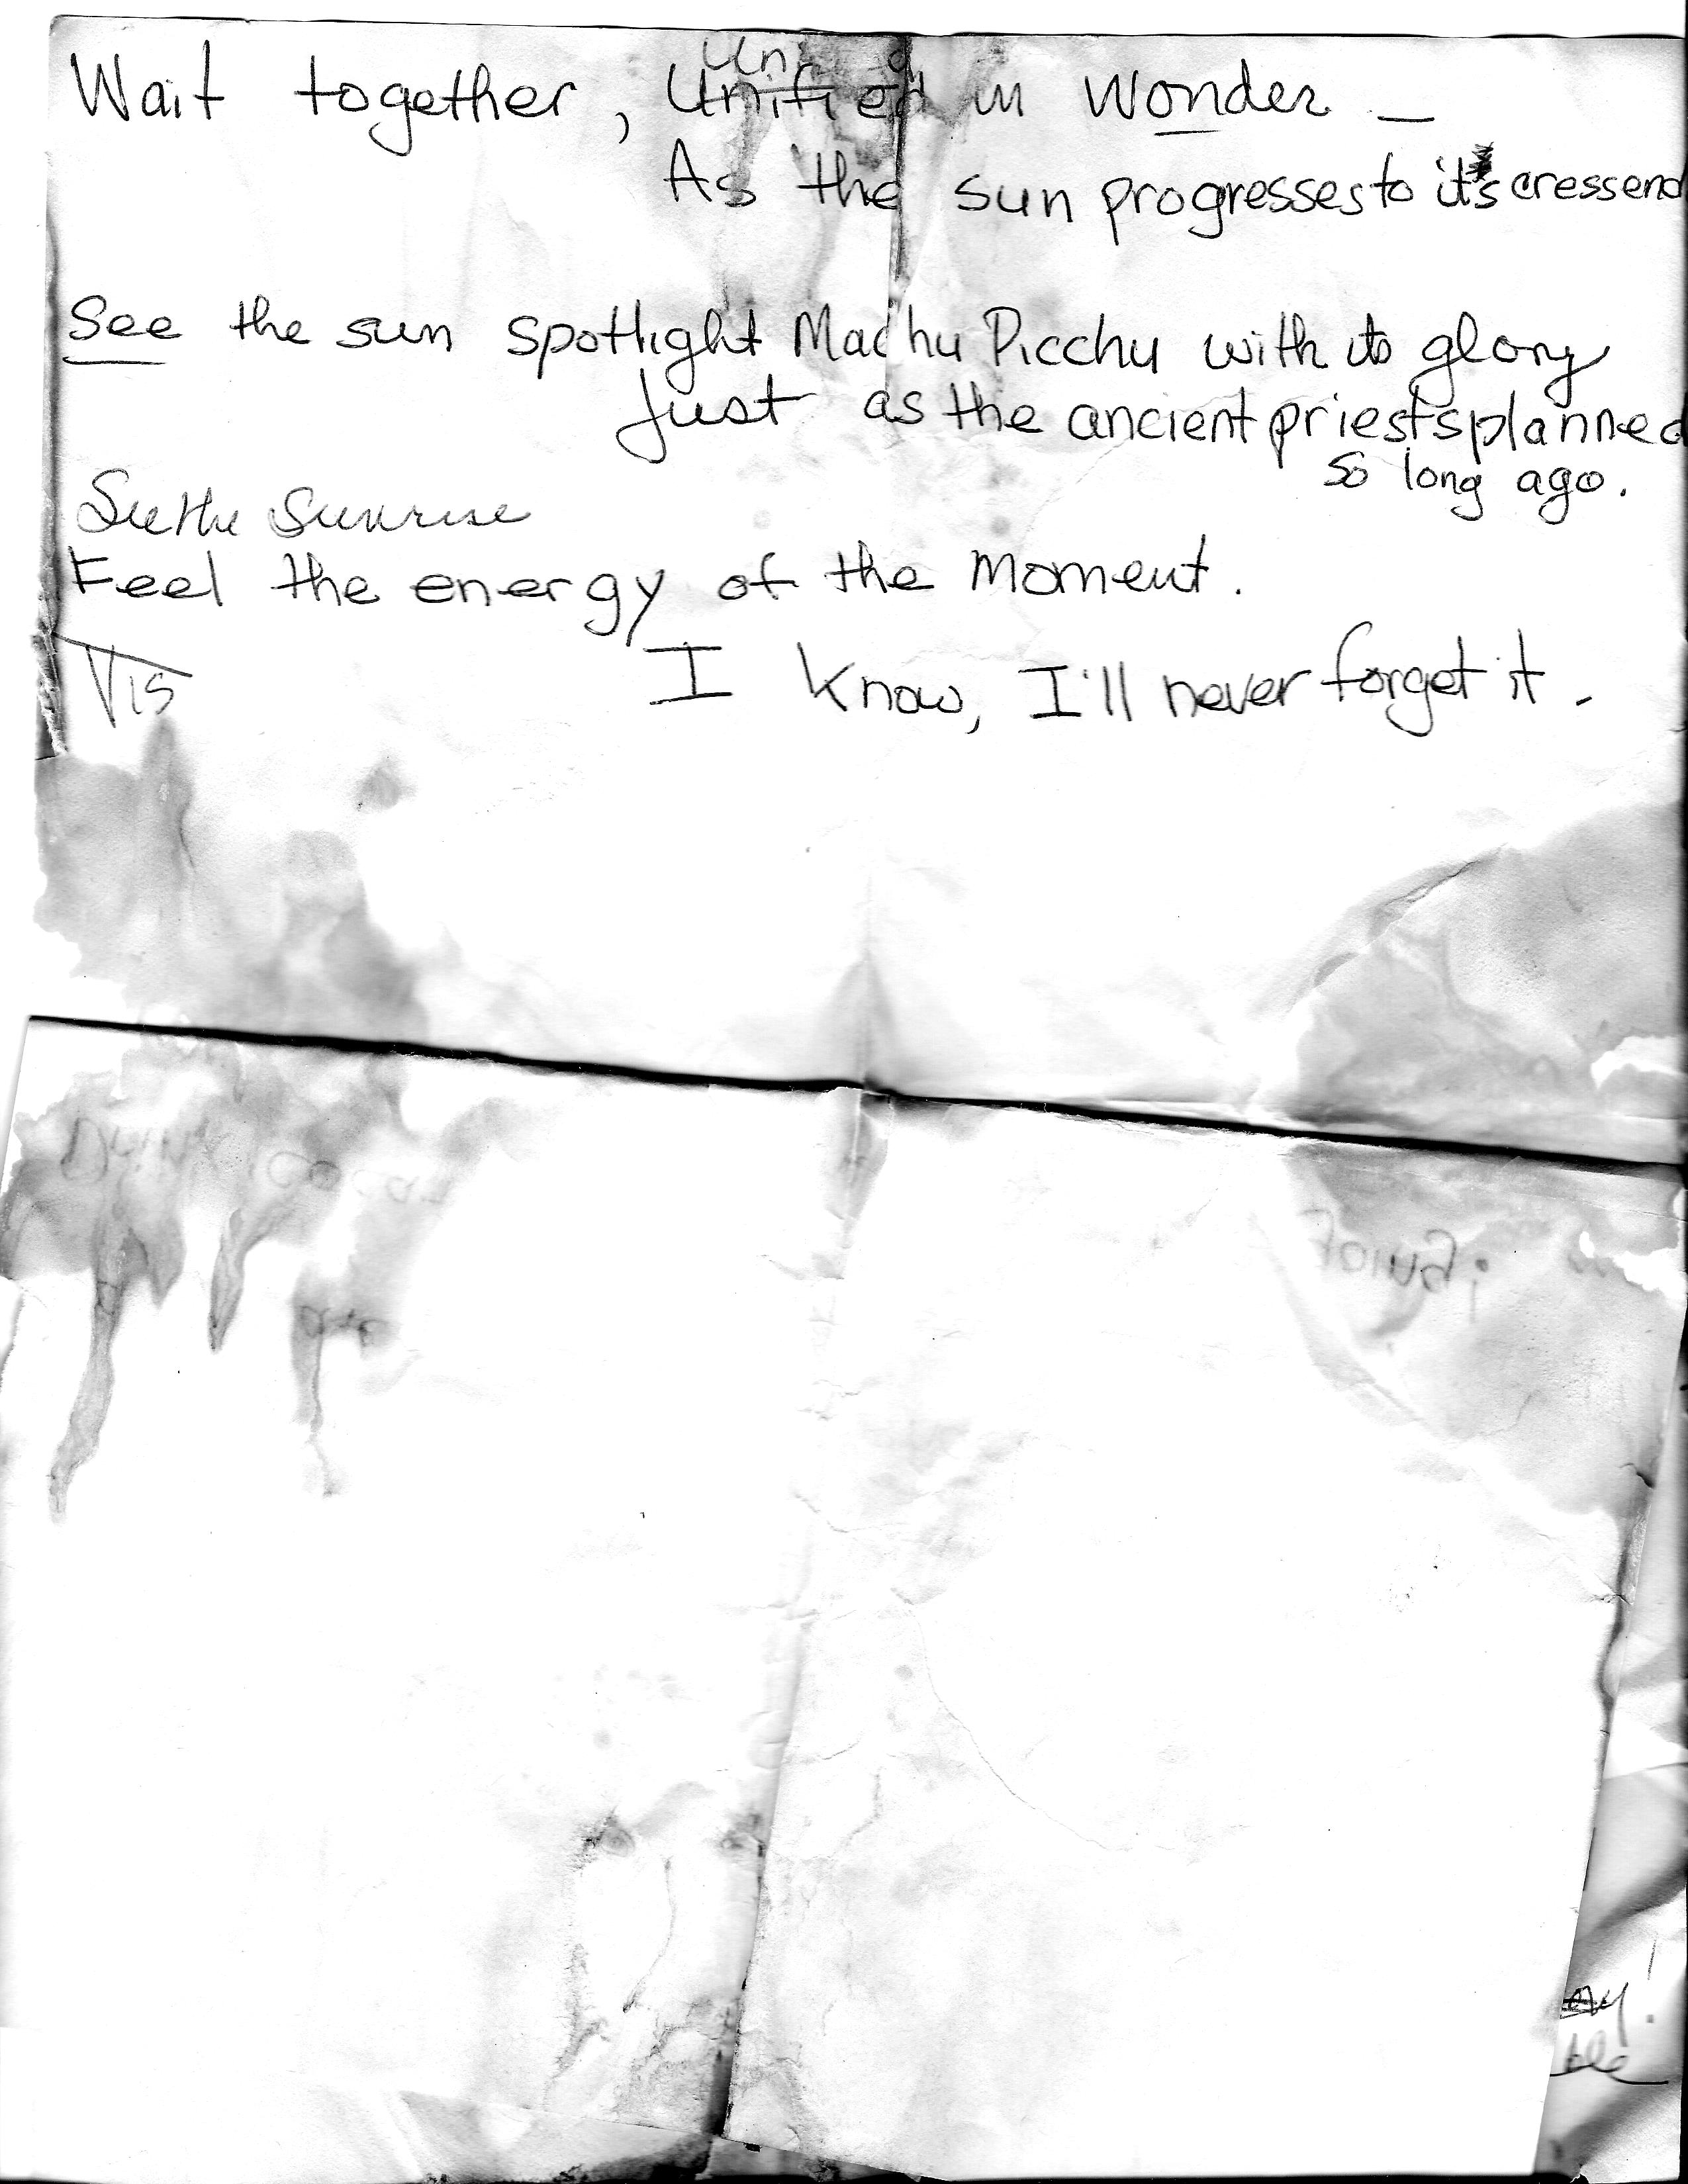 Wait together, Unified in Wonder —
As the sun progresses to its cressend
See the sun spotlight Machu Picchu with its glory
Just as the ancient priests planned
so long ago.
See the Sunrise
Feel the energy of the Moment.
I know, I'll never forget it.